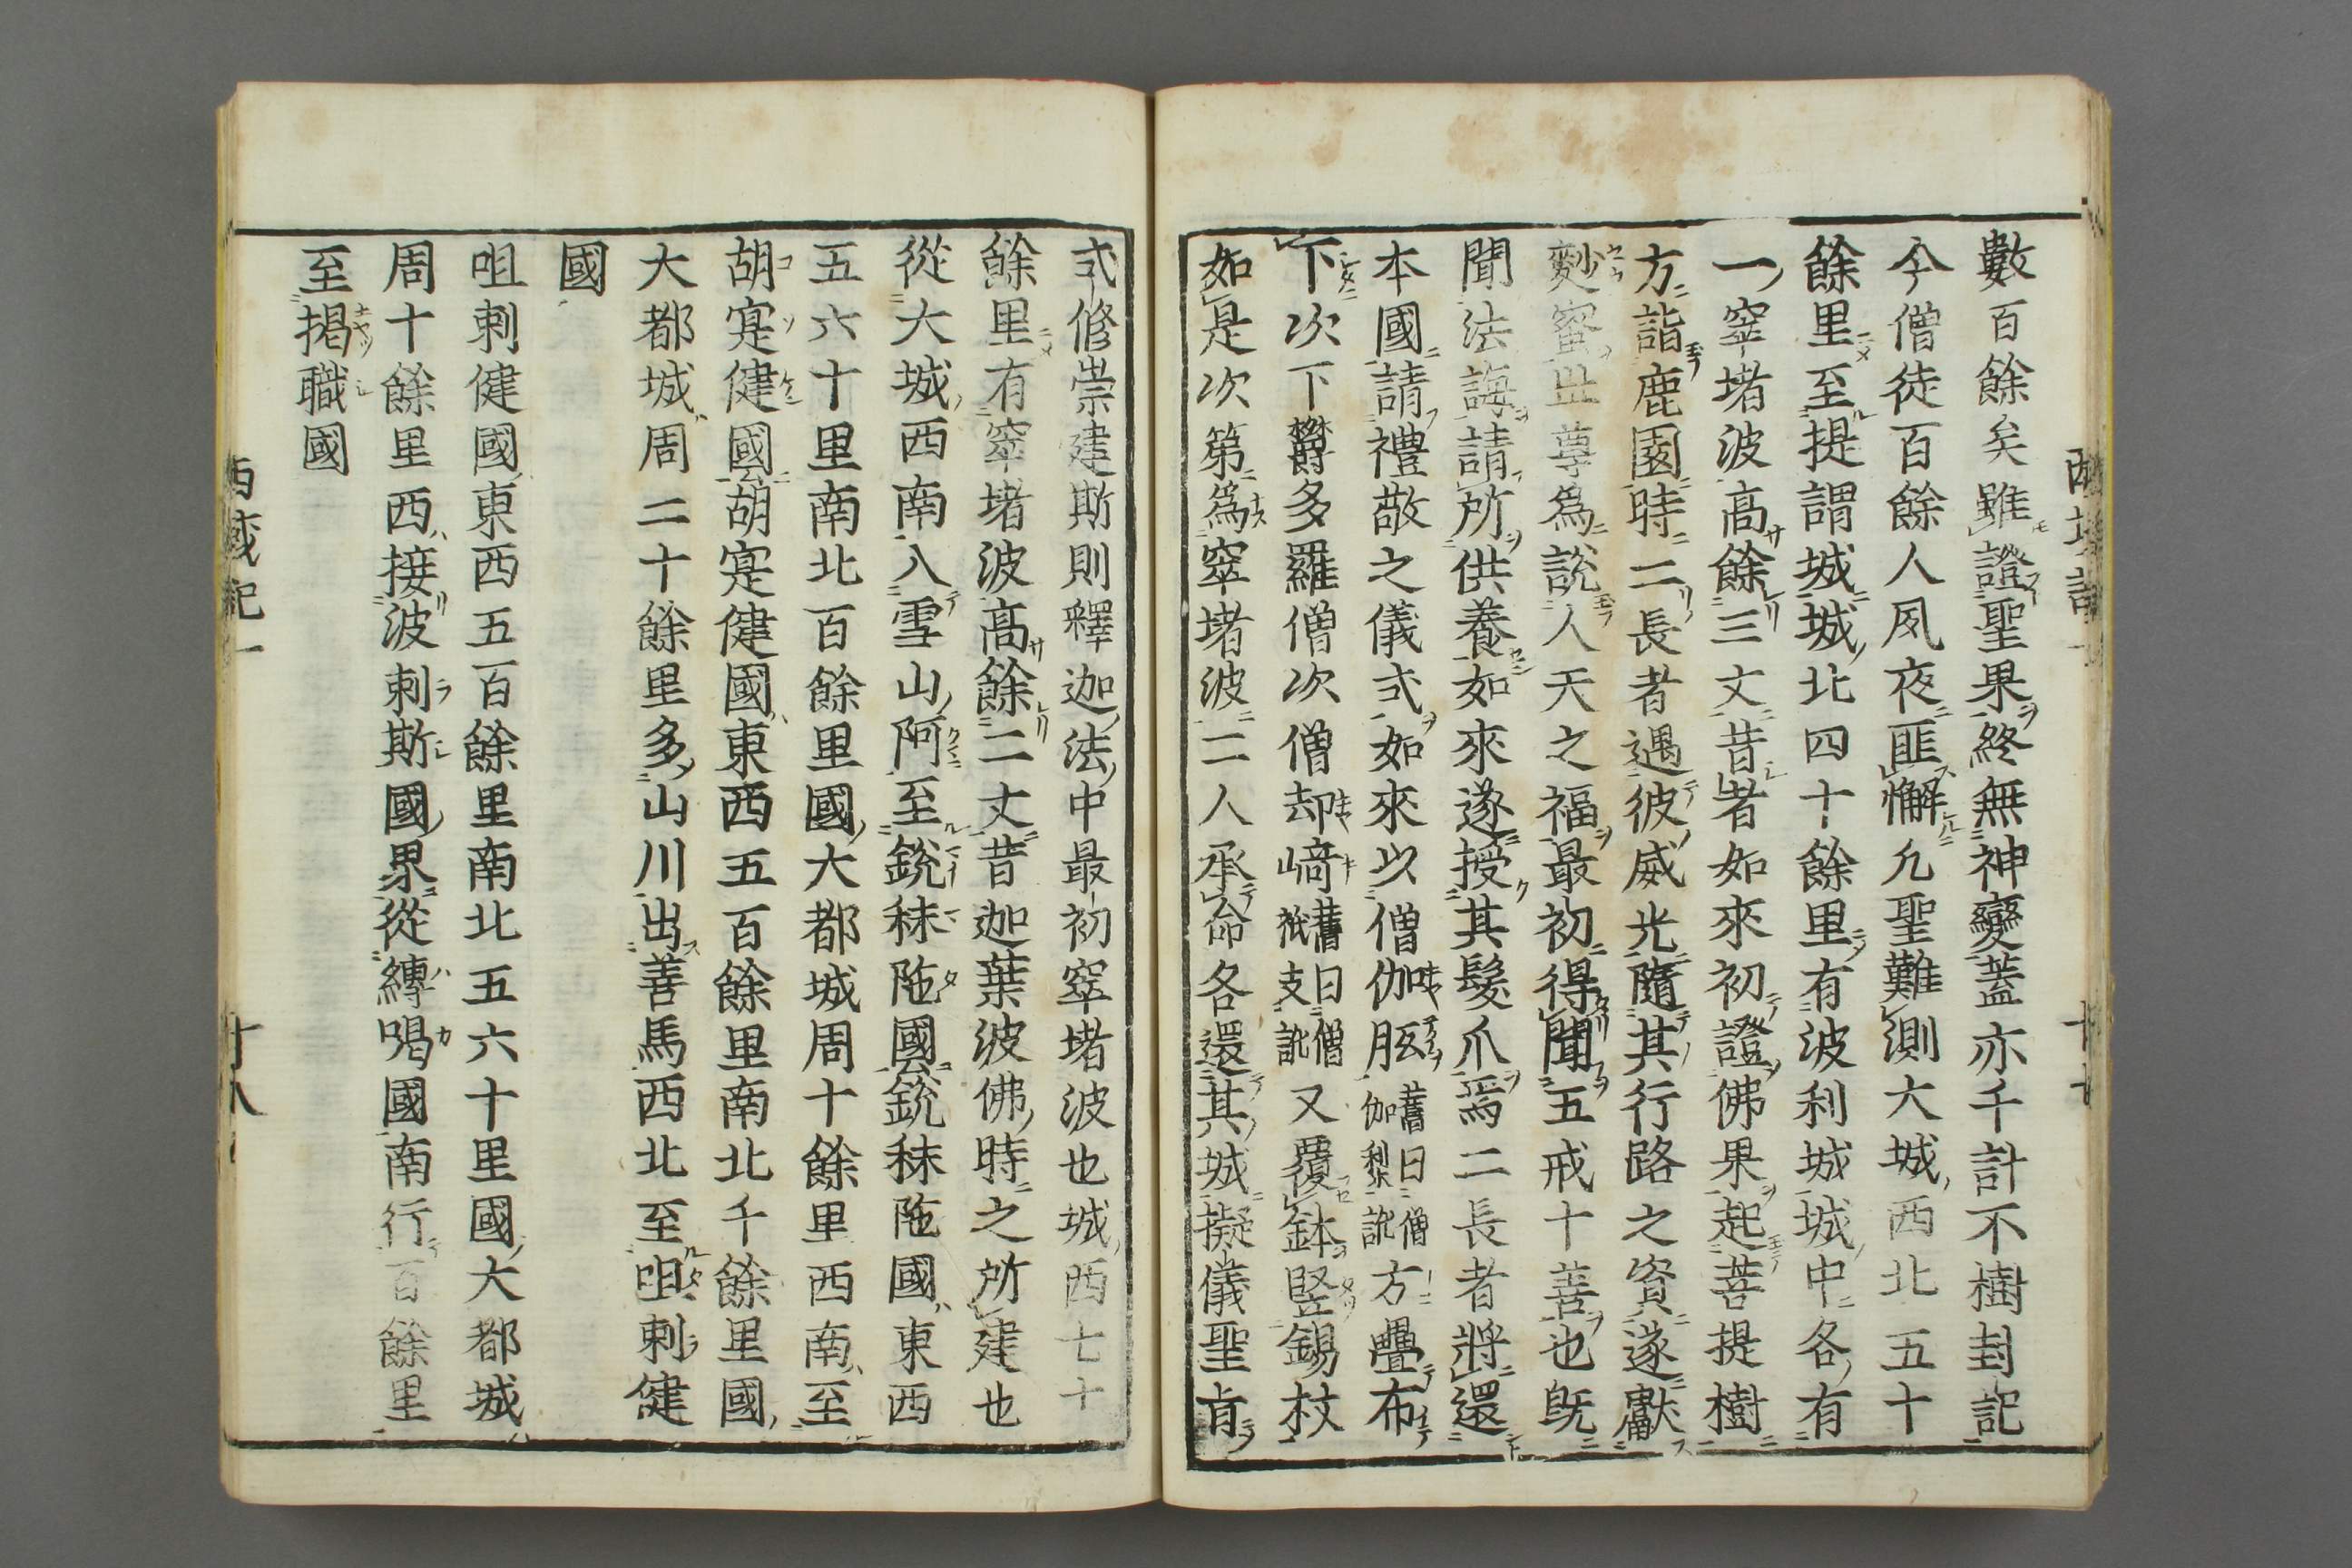 數百餘矣雖證聖果終無神變蓋亦千計不樹封記
今僧徒百餘人夙夜匪懈凡聖難測大城西北五十
餘里至提謂城城北四十餘里有波利城城中各有
一窣堵波高餘三丈昔者如來初證佛果起菩提樹
方詣鹿園時二長者遇彼威光隨其行路之資遂獻
麨蜜世尊爲說人天之福最初得聞五戒十善也既
聞法誨請所供養如來遂授其髮爪焉二長者將還
本國請禮敬之儀式如來以僧伽胝舊曰僧伽梨訛方疊布
下次下鬱多羅僧次僧却崎舊曰僧祇支訛又覆鉢竪錫杖
如是次第爲窣堵波二人承命各還其城擬儀聖旨
式修崇建斯則釋迦法中最初窣堵波也城西七十
餘里有窣堵波高餘二丈昔迦葉波佛時之所建也
從大城西南入雪山阿至銳秣陁國銳秣陁國東西
五六十里南北百餘里國大都城周十餘里西南至
胡寔健國胡寔健國東西五百餘里南北千餘里國
大都城周二十餘里多山川出善馬西北至呾剌健
國
呾剌健國東西五百餘里南北五六十里國大都城
周十餘里西接波剌斯國界從縛喝國南行百餘里
至揭職國
西域記一
十八